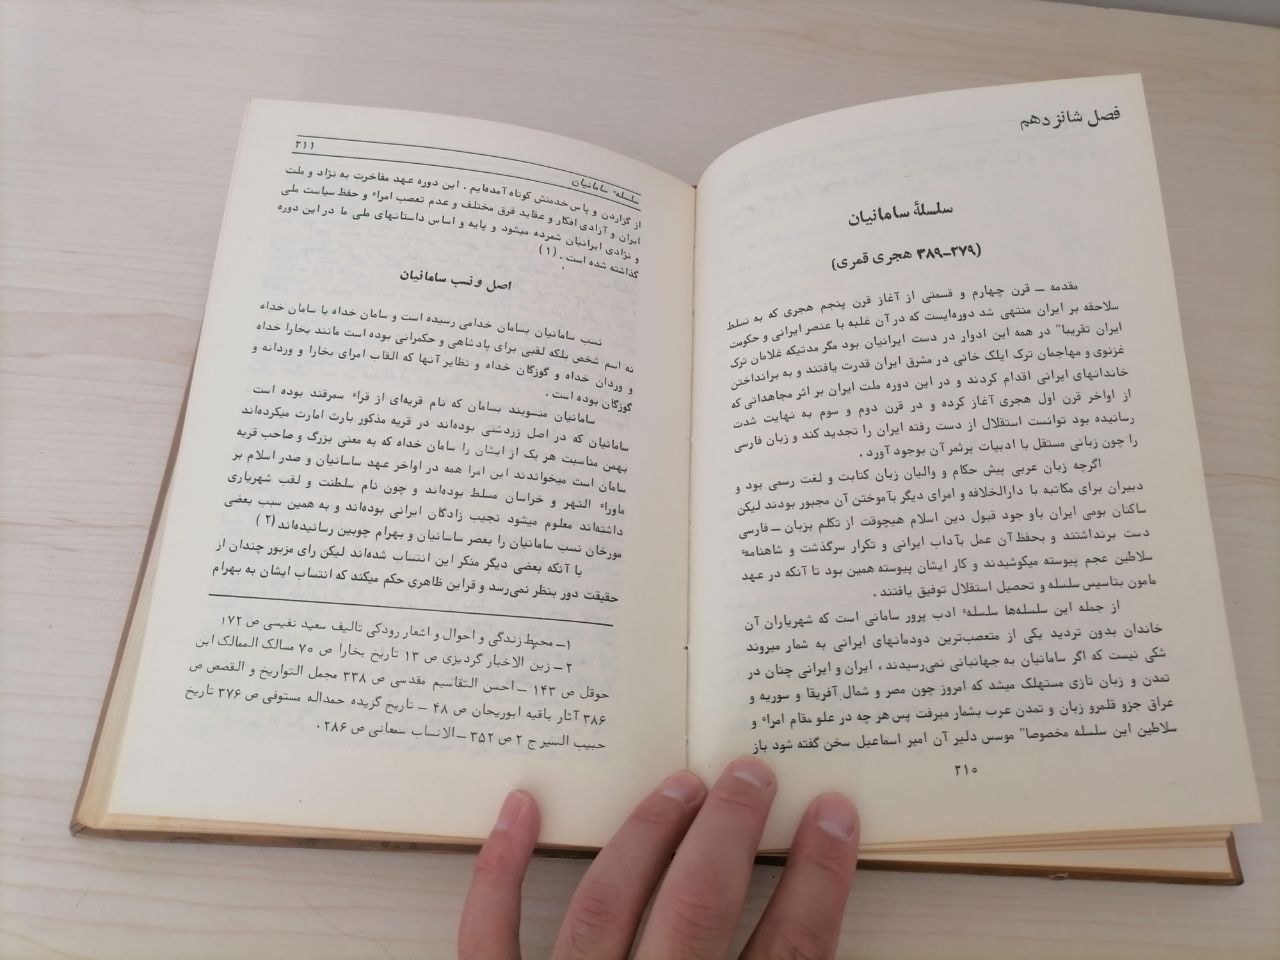 فصل شانزدهم
سلسلهٔ سامانیان
(۲۷۹-۳۸۹ هجری قمری)
مقدمه ــ قرن چهارم و قسمتی از آغاز قرن پنجم هجری که به تسلط
سلاحقه بر ایران منتهی شد دوره‌ایست که در آن غلبه با عنصر ایرانی و حکومت
ایران تقریبا" در همه این ادوار در دست ایرانیان بود مگر مدتیکه غلامان ترک
غزنوی و مهاجمان ترک ایلک خانی در مشرق ایران قدرت یافتند و به برانداختن
خاندانهای ایرانی اقدام کردند و در این دوره ملت ایران بر اثر مجاهداتی که
از اواخر قرن اول هجری آغاز کرده و در قرن دوم و سوم به نهایت شدت
رسانیده بود توانست استقلال از دست رفته ایران را تجدید کند و زبان فارسی
را چون زبانی مستقل با ادبیات پرثمر آن بوجود آورد .
اگرچه زبان عربی پیش حکام و والیان زبان کتابت و لغت رسمی بود و
دبیران برای مکاتبه با دارالخلافه و امرای دیگر بآموختن آن مجبور بودند لیکن
ساکنان بومی ایران باو جود قبول دین اسلام هیچوقت از تکلم بزبان ــ فارسی
دست برنداشتند و بحفظ آن عمل بآداب ایرانی و تکرار سرگذشت و شاهنامهٔ
سلاطین عجم پیوسته میکوشیدند و کار ایشان پیوسته همین بود تا آنکه در عهد
مامون بتاسیس سلسله و تحصیل استقلال توفیق یافتند .
از جمله این سلسله‌ها سلسلهٔ ادب پرور سامانی است که شهریاران آن
خاندان بدون تردید یکی از متعصب‌ترین دودمانهای ایرانی به شمار میروند
شکی نیست که اگر سامانیان به جهانبانی نمی‌رسیدند ، ایران و ایرانی چنان در
تمدن و زبان تازی مستهلک میشد که امروز چون مصر و شمال آفریقا و سوریه و
عراق جزو قلمرو زبان و تمدن عرب بشمار میرفت پس هر چه در علو مقام امراء و
سلاطین این سلسله مخصوصا" موسس دلیر آن امیر اسماعیل سخن گفته شود باز
۲۱۰
سلسلهٔ سامانیان
۲۱۱
از گزاردن و پاس خدمتش کوتاه آمده‌ایم . این دوره عهد مفاخرت به نژاد و ملت
ایران و آزادی افکار و عقاید فرق مختلف و عدم تعصب امراء و حفظ سیاست ملی
و نژادی ایرانیان شمرده میشود و پایه و اساس داستانهای ملی ما در این دوره
گذاشته شده است . (۱)
اصل و نسب سامانیان
نسب سامانیان بسامان خدامی رسیده است و سامان خداه یا سامان خداه
نه اسم شخص بلکه لقبی برای پادشاهی و حکمرانی بوده است مانند بخارا خداه
و وردان خداه و گوزگان خداه و نظایر آنها که القاب امرای بخارا و وردانه و
گوزگان بوده است .
سامانیان منسوبند بسامان که نام قریه‌ای از قراء سمرقند بوده است
سامانیان که در اصل زردشتی بوده‌اند در قریه مذکور بارث امارت میکرده‌اند
بهمن مناسبت هر یک از ایشان را سامان خداه که به معنی بزرگ و صاحب قریه
سامان است میخواندند این امرا همه در اواخر عهد ساسانیان و صدر اسلام بر
ماوراء النهر و خراسان مسلط بوده‌اند و چون نام سلطنت و لقب شهریاری
داشته‌اند معلوم میشود نجیب زادگان ایرانی بوده‌اند و به همین سبب بعضی
مورخان نسب سامانیان را بعصر ساسانیان و بهرام چوبین رسانیده‌اند (۲)
با آنکه بعضی دیگر منکر این انتساب شده‌اند لیکن رای مزبور چندان از
حقیقت دور بنظر نمی‌رسد و قراین ظاهری حکم میکند که انتساب ایشان به بهرام
۱ــ محیط زندگی و احوال و اشعار رودکی تالیف سعید نفیسی ص ۱۷۲
۲ــ زین الاخبار گردیزی ص ۱۳ تاریخ بخارا ص ۷۰ مسالک الممالک ابن
حوقل ص ۱۴۳ ــ احسن التقاسیم مقدسی ص ۳۳۸ مجمل التواریخ و القصص ص
۳۸۶ آثار باقیه ابوریحان ص ۴۸ ــ تاریخ گزیده حمداله مستوفی ص ۳۷۶ تاریخ
حبیب السیر ج ۲ ص ۳۵۲ ــ الانساب سمعانی ص ۲۸۶ .